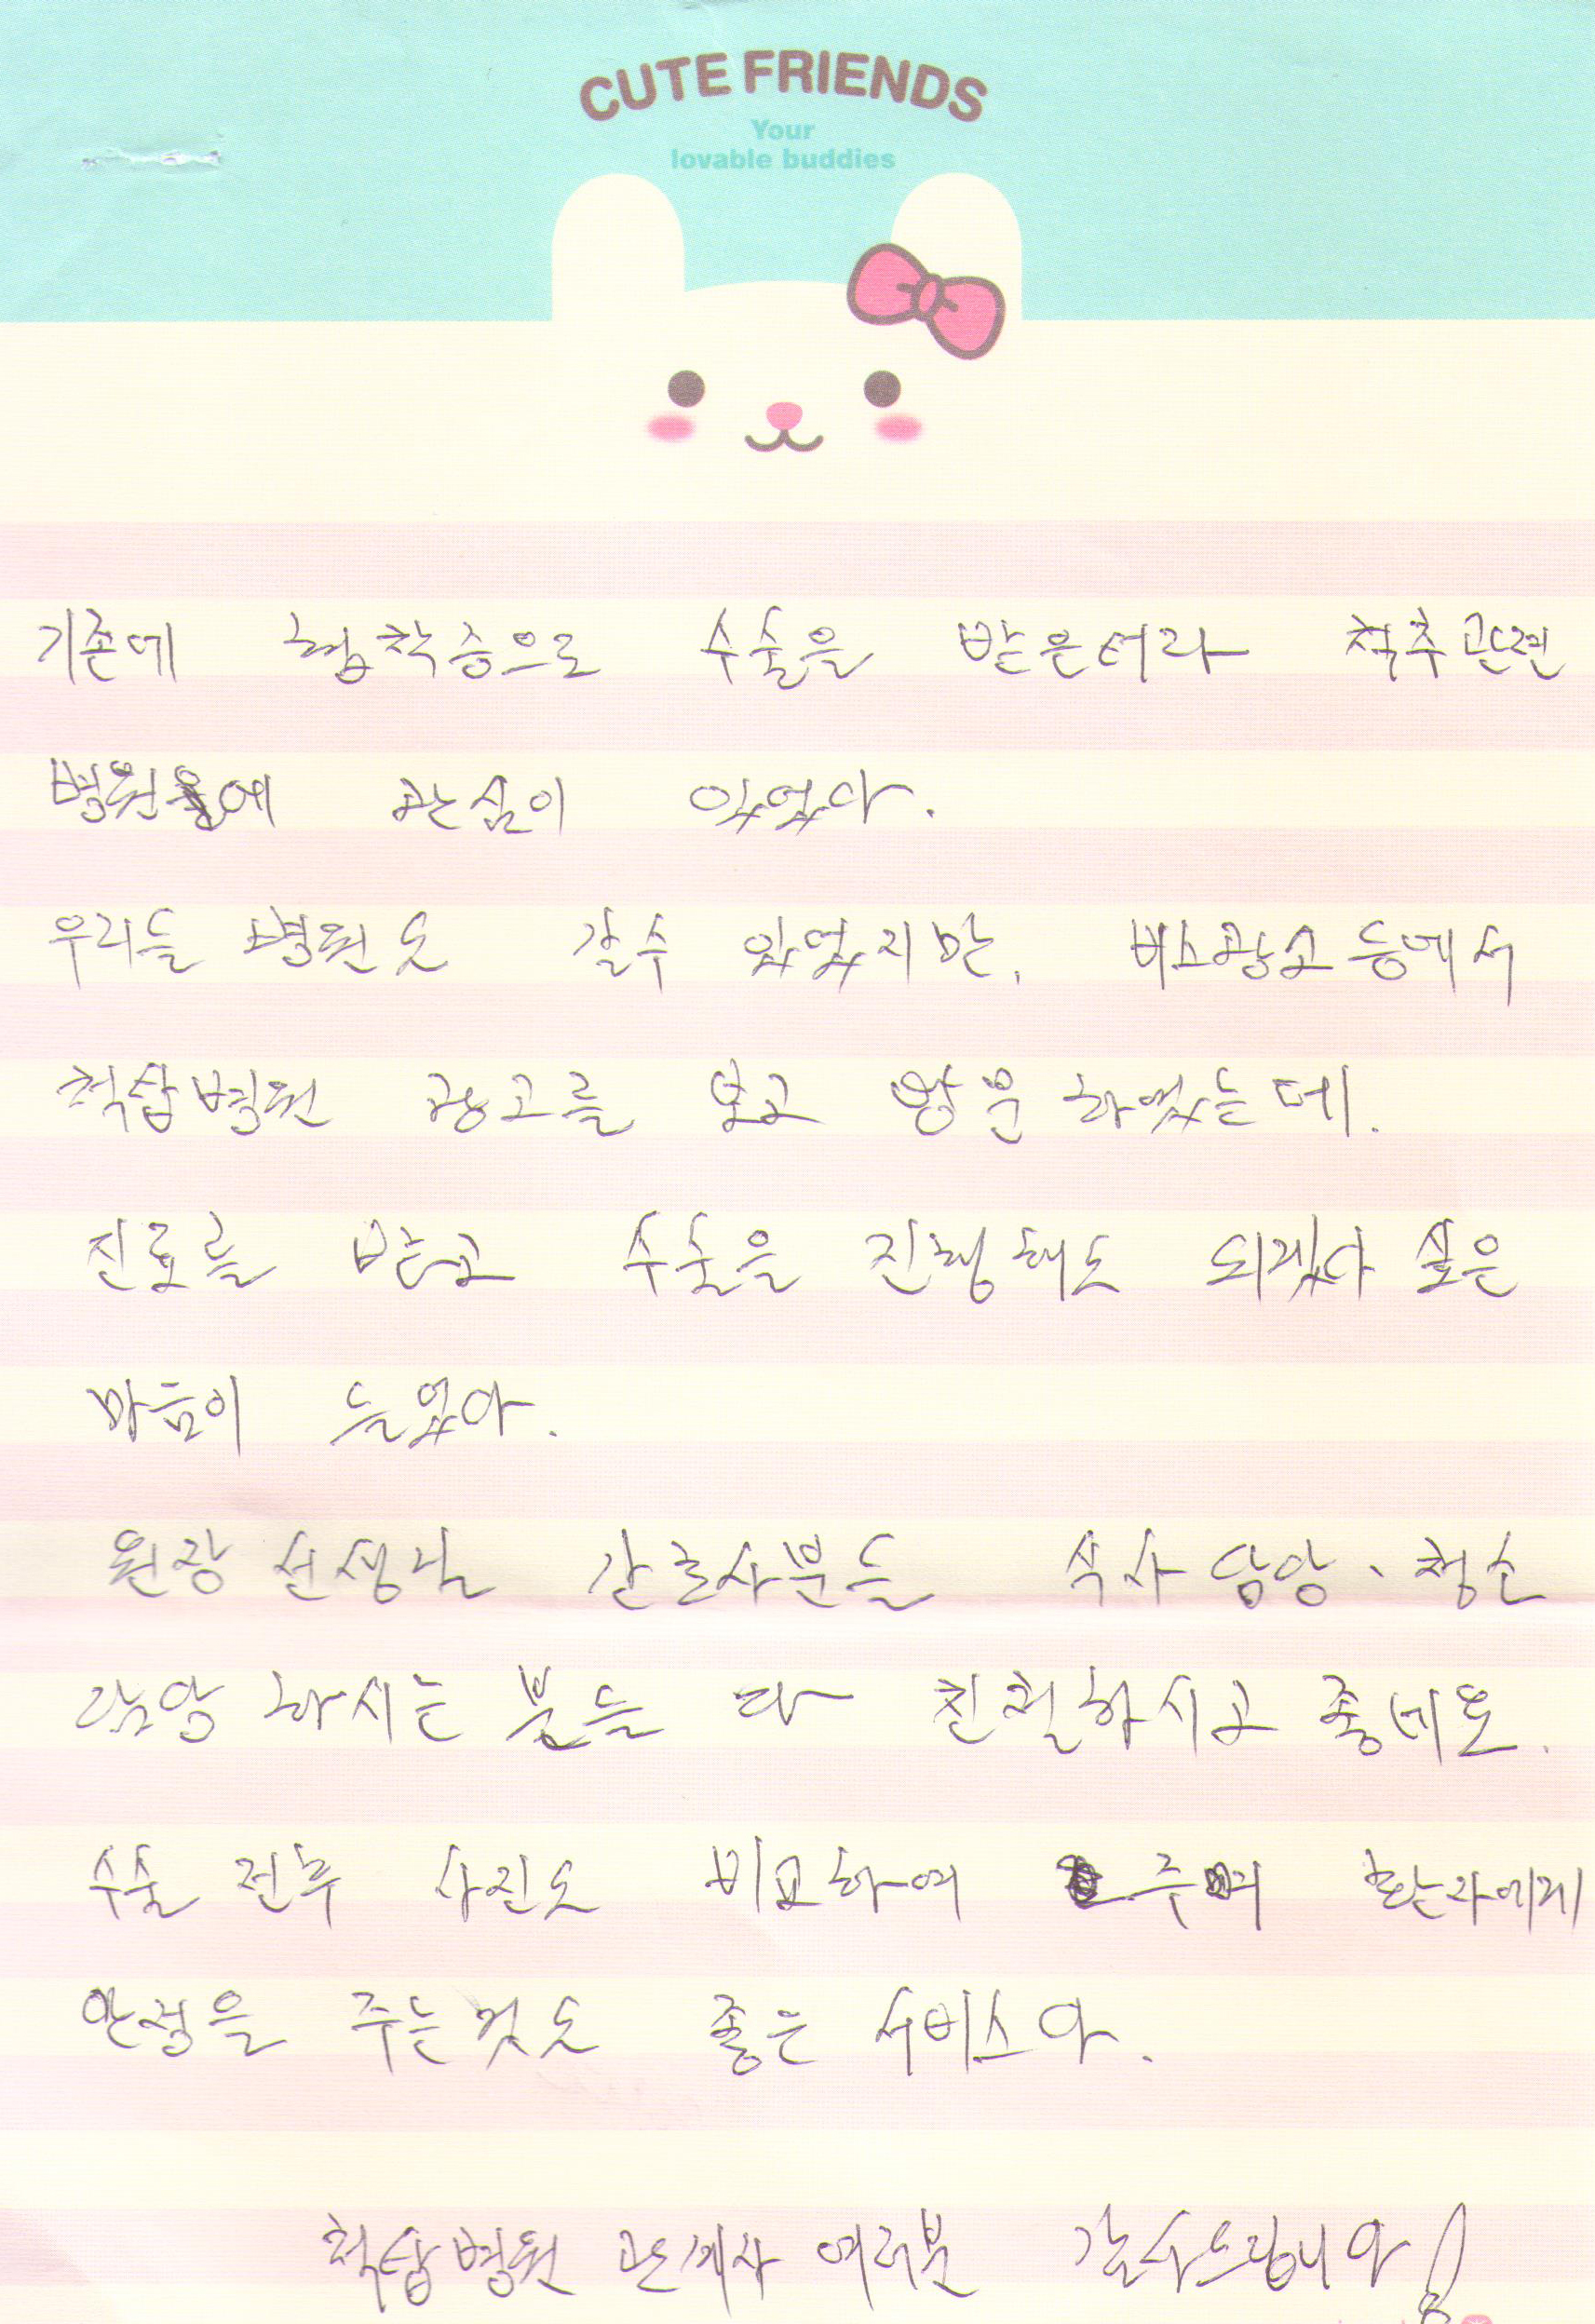 CUTE FRIENDS
Your
lovable buddies
기존에 협착증으로 수술을 받은터라 척추관련
병원에 관심이 있었다.
우리들 병원도 갈수 있었지만, 버스광고 등에서
척탑병원 광고를 보고 방문하였는데.
진료를 받고 수술을 진행해도 되겠다 싶은
마음이 들었다.
원장 선생님 간호사분들 식사 담당、청소
담당 하시는 분들 다 친절하시고 좋네요.
수술 전후 사진도 비교하여 주며 환자에게
안정을 주는것도 좋은 서비스다.
척탑병원 관계자 여러분 감사드립니다!